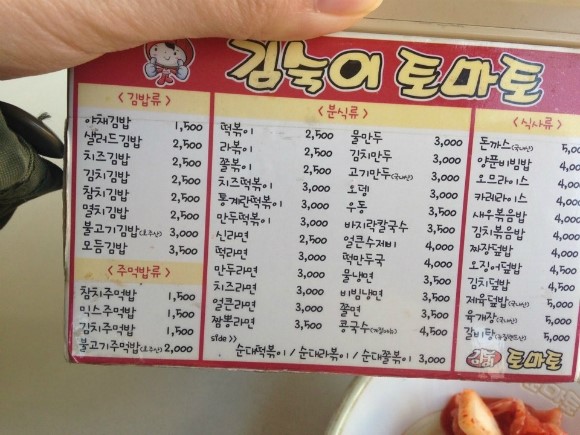 김숙이 토마토
<김밥류>
야채김밥 1,500
샐러드김밥 2,500
치즈김밥 2,500
김치김밥 2,500
참치김밥 2,500
멸치김밥 2,500
불고기김밥(호주산) 3,000
모듬김밥 3,500
<주먹밥류>
참치주먹밥 1,500
믹스주먹밥 1,500
김치주먹밥 1,500
불고기주먹밥(호주산) 2,000
<분식류>
떡볶이 2,500
라볶이 2,500
쫄볶이 2,500
치즈떡볶이 3,000
통계란떡볶이 3,000
만두떡볶이 3,000
신라면 2,500
떡라면 3,000
만두라면 3,000
치즈라면 3,000
얼큰라면 3,000
짬뽕라면 3,500
물만두 3,000
김치만두 3,000
고기만두(국내산) 3,000
오뎅 3,000
우동 3,000
바지락칼국수 3,500
얼큰수제비 4,000
떡만두국 4,000
물냉면 3,500
비빔냉면 3,500
쫄면 3,500
콩국수 4,500
side >>
순대떡볶이 / 순대라볶이 / 순대쫄볶이 3,000
<식사류>
돈까스(국내산) 5,0
양푼비빔밥 4,0
오므라이스 4,0
카레라이스 4,00
새우볶음밥 4,00
김치볶음밥 4,000
짜장덮밥 4,000
오징어덮밥 4,500
김치덮밥 4,500
제육덮밥(국내산) 5,000
육개장(국내산) 5,000
갈비탕 5,000
김숙이 토마토